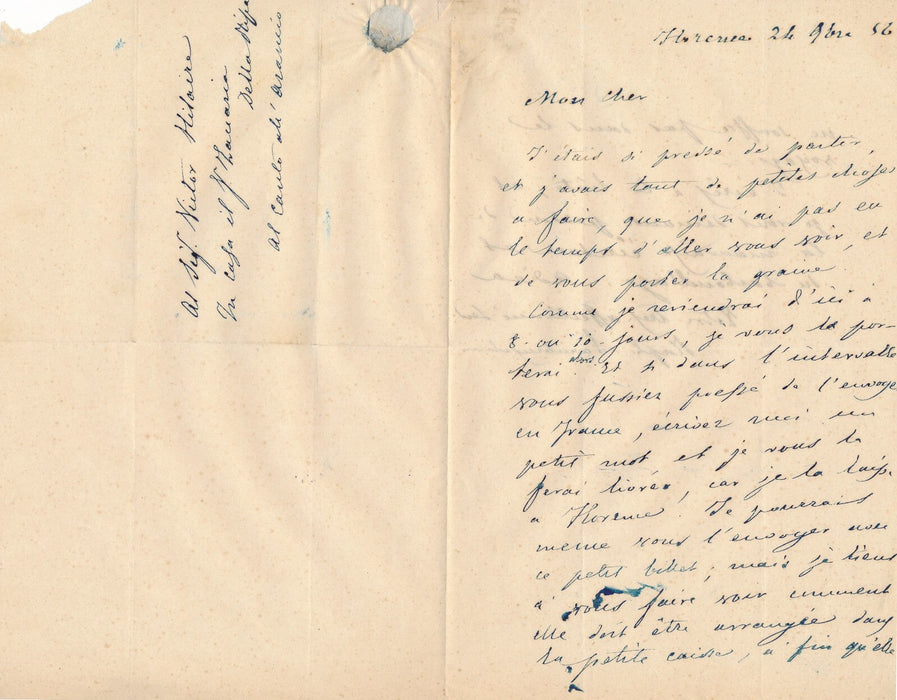 Al Sig. Victor Hilaire
In casa il Sr Zanaria
Della Stufa
Al Canto al'
Florence 24 9bre 56
Mon cher
J'étais si pressé de partir,
et j'avais tant de petites choses
a faire, que je n'ai pas eu
le temps d'aller vous voir, et
de vous porter la graine.
Comme je reviendrai d'ici à
8 ou 10 jours, je vous la por-
terai alors. Et si dans l'intervalle
vous fussiez pressé de l'envoyer
en France, écrivez moi un
petit mot et je vous la
ferai livrer, car je la laisse
a Florence! Je pourrais
meme vous l'envoyer avec
ce petit billet; mais je tiens
à vous faire voir comment
elle doit être arrangée dans
la petite caisse, a fin qu'elle